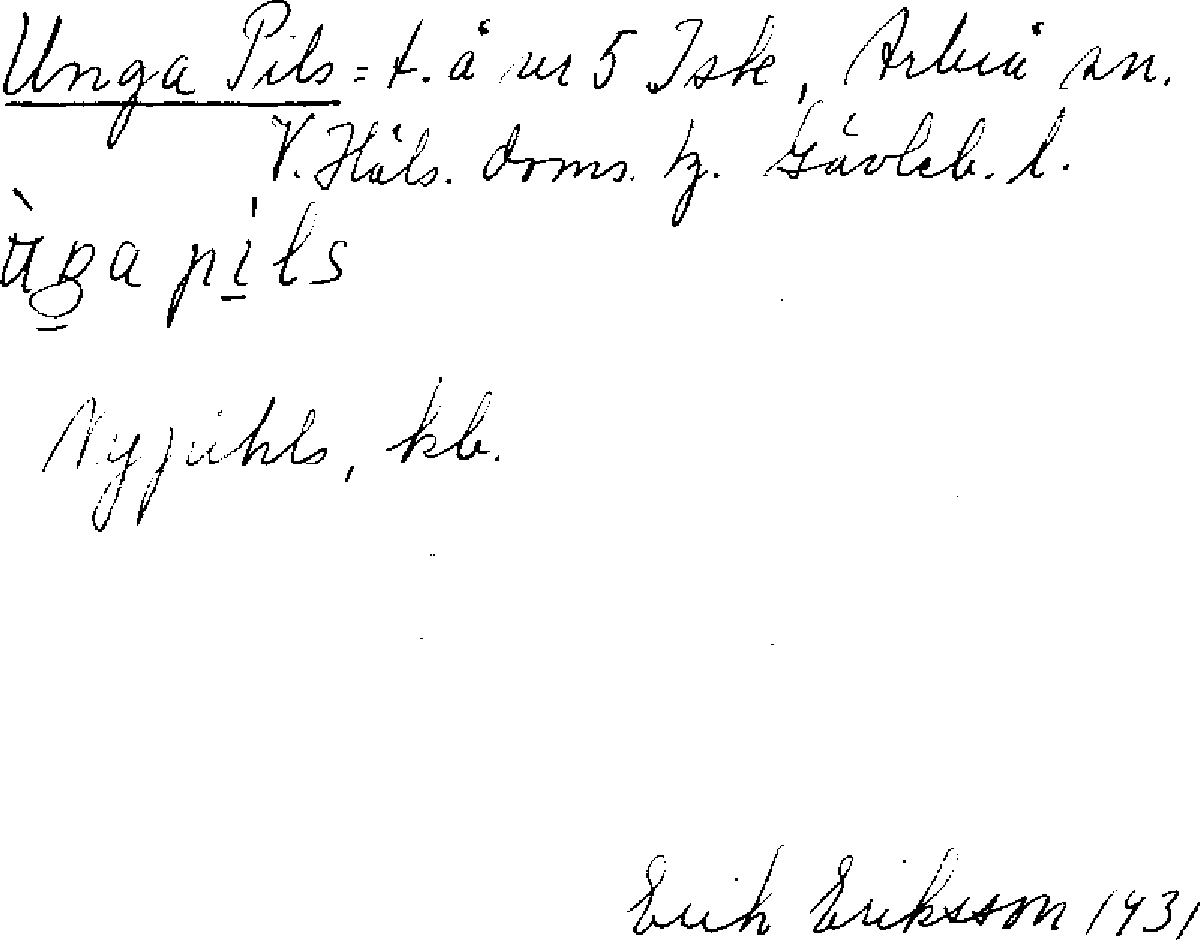 Unga Pils = t. å nr 5 Isk, Arbrå sn.
V. Häls. doms. hg. Gävleb. l.
ùŋa pils
Nypihls, kb.
Erik Eriksson 1931